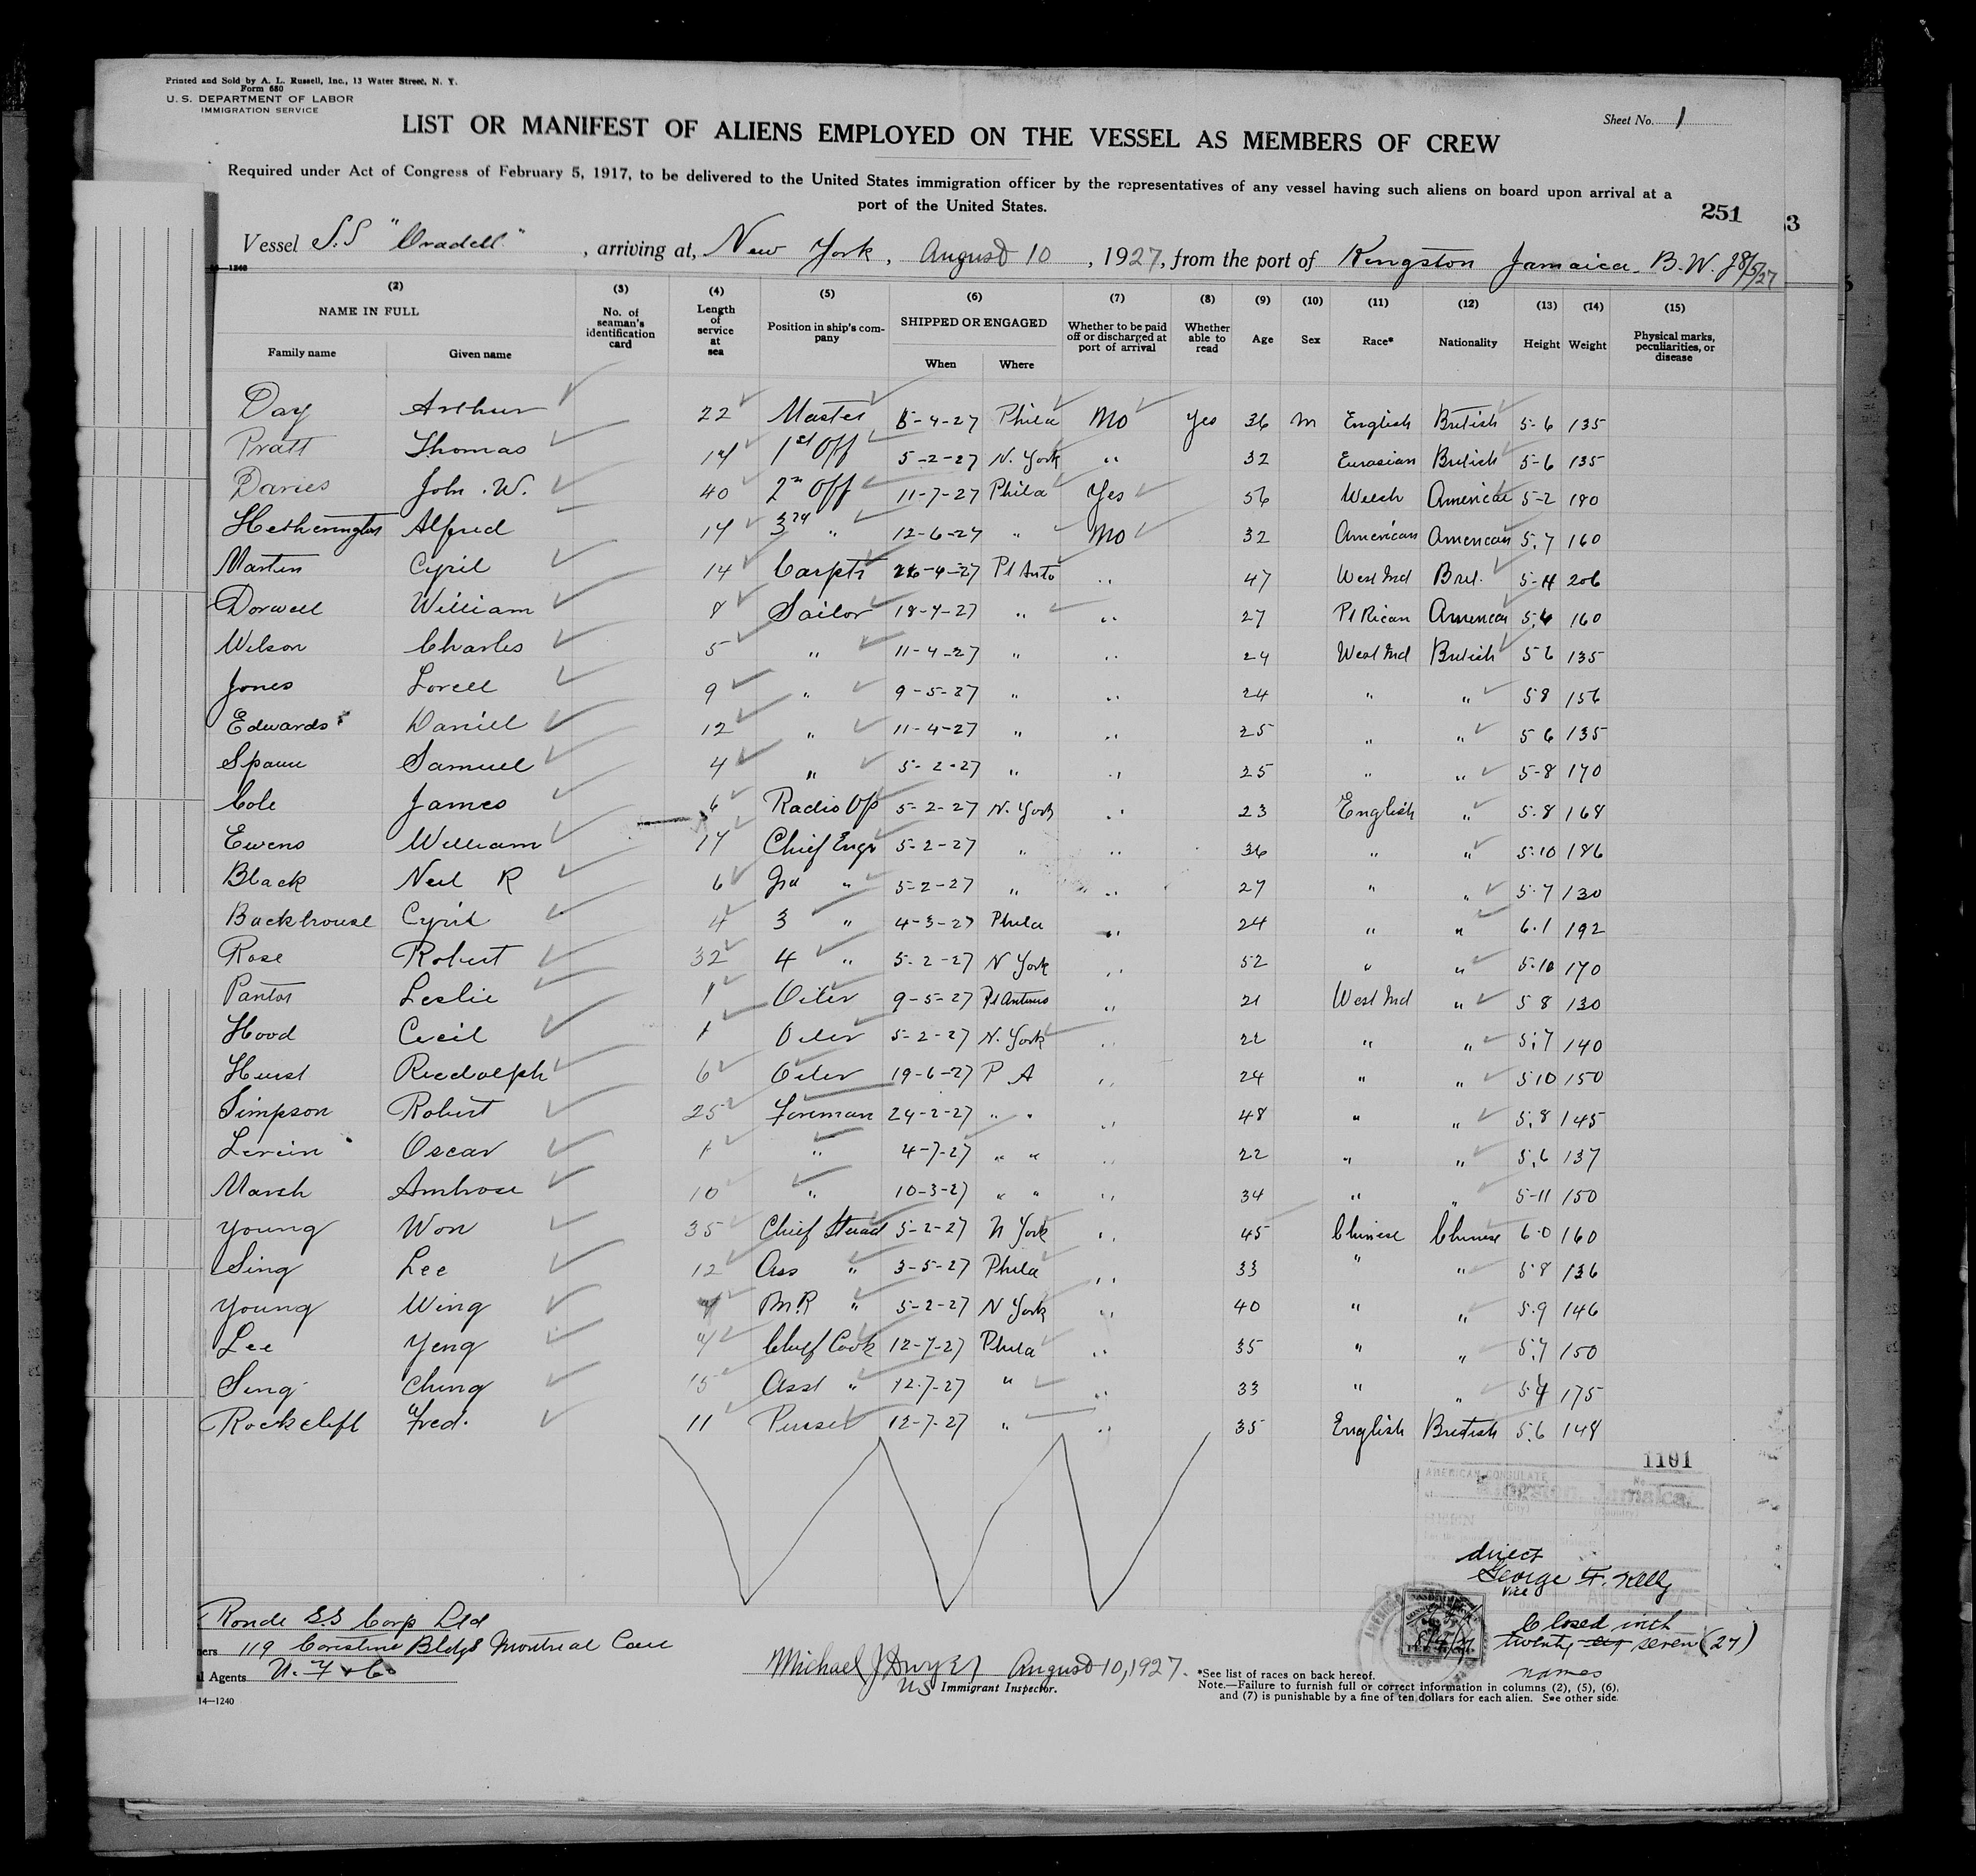 Printed and Sold by A. L. Russell, Inc., 13 Water Street, N. Y.
Form 680
U. S. DEPARTMENT OF LABOR
IMMIGRATION SERVICE
Sheet No. 1
LIST OR MANIFEST OF ALIENS EMPLOYED ON THE VESSEL AS MEMBERS OF CREW
Required under Act of Congress of February 5, 1917, to be delivered to the United States immigration officer by the representatives of any vessel having such aliens on board upon arrival at a
port of the United States.
251
3
Vessel S.S "Oradell", arriving at, New York, August 10, 1927, from the port of Kingston Jamaica. B.W.J 8/5/27
14—1240
(2) (3) (4) (5) (6) (7) (8) (9) (10) (11) (12) (13) (14) (15)
NAME IN FULL No. of seaman's identification card Length of service at sea Position in ship's company SHIPPED OR ENGAGED Whether to be paid off or discharged at port of arrival Whether able to read Age Sex Race* Nationality Height Weight Physical marks, peculiarities, or disease
Family name Given name When Where
Day Arthur 22 Master 5-4-27 Phila No Yes 36 m English British 5-6 135
Pratt Thomas 14 1st Off 5-2-27 N. York " 32 Eurasian British 5-6 135
Davies John .W. 40 2n Off 11-7-27 Phila Yes 56 Welch American 5-2 180
Hetherington Alfred 14 3rd " 12-6-27 " No 32 American American 5.7 160
Martin Cyril 14 Carptr 26-4-27 Pt Anto " 47 West Ind Brit. 5-11 206
Dorwell William 8 Sailor 18-7-27 " " 27 Pt Rican American 5.6 160
Wilson Charles 5 " 11-4-27 " " 24 West Ind British 5 6 135
Jones Lovell 9 " 9-5-27 " " 24 " " 5 8 156
Edwards Daniel 12 " 11-4-27 " " 25 " " 5 6 135
Samuel 4 " 5-2-27 " " 25 " " 5-8 170
Cole James 6 Radio Op 5-2-27 N. York " 23 English " 5.8 168
Ewens William 14 Chief Engr 5-2-27 " " 36 " " 5.10 186
Black Neil R 6 " 5-2-27 " " 27 " " 5.7 130
Backhouse Cyril 4 3 " 4-3-27 Phila " 24 " " 6.1 192
Rose Robert 32 4 " 5-2-27 N York " 52 " " 5.10 170
Leslie 1 Oiler 9-5-27 Pt Antonio " 21 West Ind " 5 8 130
Hood Cecil 1 Oiler 5-2-27 N. York " 22 " " 5.7 140
Hurst Rudolph 6 Oiler 19-6-27 P A " 24 " " 5 10 150
Simpson Robert 25 Foreman 24-2-27 " " " 48 " " 5.8 145
Oscar 1 " 4-7-27 " " " 22 " " 5.6 137
March Ambrose 10 " 10-3-27 " " " 34 " " 5-11 150
Young Won 35 Chief Steward 5-2-27 N York " 45 Chinese Chinese 6.0 160
Sing Lee 12 Ass " 3-5-27 Phila " 33 " " 5.8 136
Young Wing M.R " 5-2-27 N York " 40 " " 5.9 146
Lee Yeng Chief Cook 12-7-27 Phila " 35 " " 5.7 150
Sing Ching 15 Asst " 12.7-27 " " 33 " " 5.4 175
Rockclift Fred. 11 Purser 12-7-27 " " 35 English British 5.6 148
1101
AMERICAN CONSULATE
Kingston, Jamaica.
(City) (Country)
direct
George F. Kelly
Vice
Closed with
twenty seven (27)
names
Ronde SS Corp Ltd
ners 119 Coristine Bldgs Montreal Can
l Agents U. F & Co
14—1240
Michael J Dwyer August 10, 1927.
US Immigrant Inspector.
*See list of races on back hereof.
Note.—Failure to furnish full or correct information in columns (2), (5), (6),
and (7) is punishable by a fine of ten dollars for each alien. See other side.